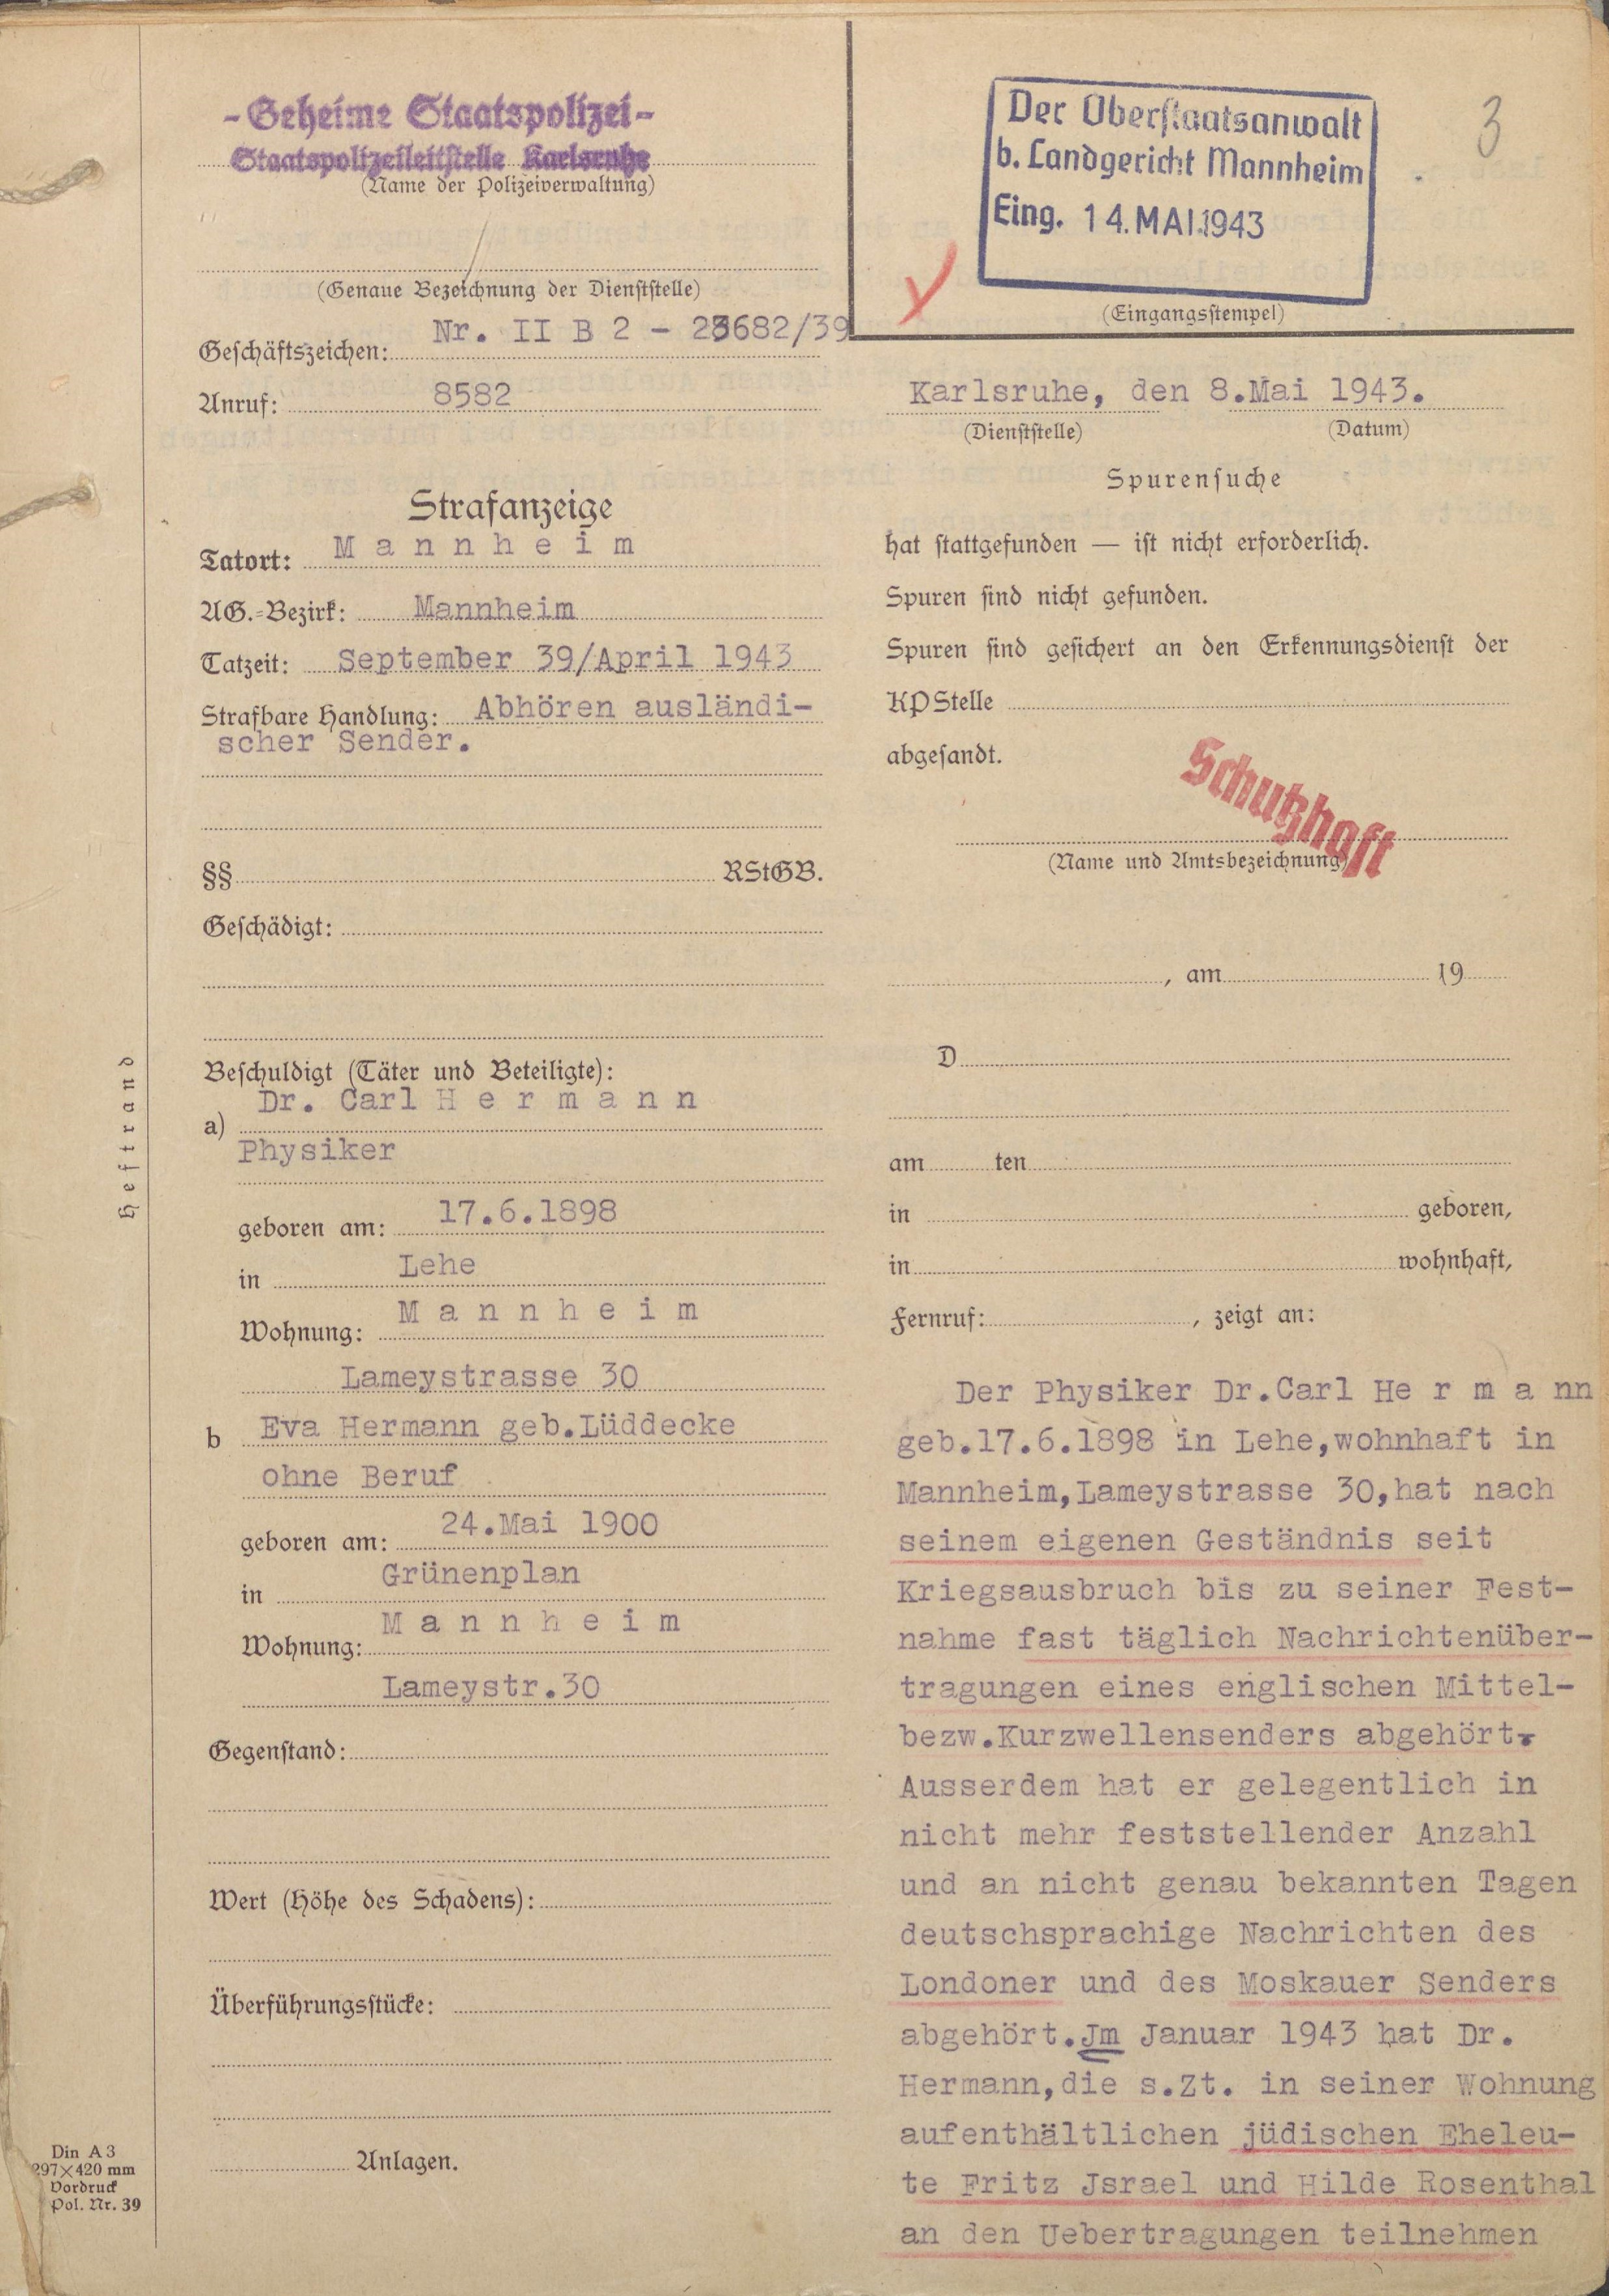 3
-Geheime Staatspolizei-
Staatspolizeileitstelle Karlsruhe
(Name der Polizeiverwaltung)
(Genaue Bezeichnung der Dienststelle)
Geschäftszeichen: Nr. II B 2 - 23682/39
Anruf: 8582
Strafanzeige
Tatort: M a n n h e i m
AG.-Bezirk: Mannheim
Tatzeit: September 39/April 1943
Strafbare Handlung: Abhören ausländi-
scher Sender.
§§ RStGB.
Geschädigt:
Beschuldigt (Täter und Beteiligte):
a) Dr. Carl H e r m a n n
Physiker
geboren am: 17.6.1898
in Lehe
Wohnung: M a n n h e i m
Lameystrasse 30
b Eva Hermann geb.Lüddecke
ohne Beruf
geboren am: 24.Mai 1900
in Grünenplan
Wohnung: M a n n h e i m
Lameystr.30
Gegenstand:
Wert (Höhe des Schadens):
Überführungsstücke:
Anlagen.
Heftrand
Din A 3
297×420 mm
Vordruck
Pol. Nr. 39
Der Oberstaatsanwalt
b. Landgericht Mannheim
Eing. 14. MAI 1943
(Eingangsstempel)
Karlsruhe, den 8.Mai 1943.
(Dienststelle) (Datum)
Spurensuche
hat stattgefunden — ist nicht erforderlich.
Spuren sind nicht gefunden.
Spuren sind gesichert an den Erkennungsdienst der
KPStelle
abgesandt.
Schutzhaft
(Name und Amtsbezeichnung)
, am 19
D
am ten
in geboren,
in wohnhaft,
Fernruf: , zeigt an:
Der Physiker Dr.Carl He r m a nn
geb.17.6.1898 in Lehe,wohnhaft in
Mannheim,Lameystrasse 30,hat nach
seinem eigenen Geständnis seit
Kriegsausbruch bis zu seiner Fest-
nahme fast täglich Nachrichtenüber-
tragungen eines englischen Mittel-
bezw.Kurzwellensenders abgehört.
Ausserdem hat er gelegentlich in
nicht mehr feststellender Anzahl
und an nicht genau bekannten Tagen
deutschsprachige Nachrichten des
Londoner und des Moskauer Senders
abgehört.Jm Januar 1943 hat Dr.
Hermann,die s.Zt. in seiner Wohnung
aufenthältlichen jüdischen Eheleu-
te Fritz Jsrael und Hilde Rosenthal
an den Uebertragungen teilnehmen